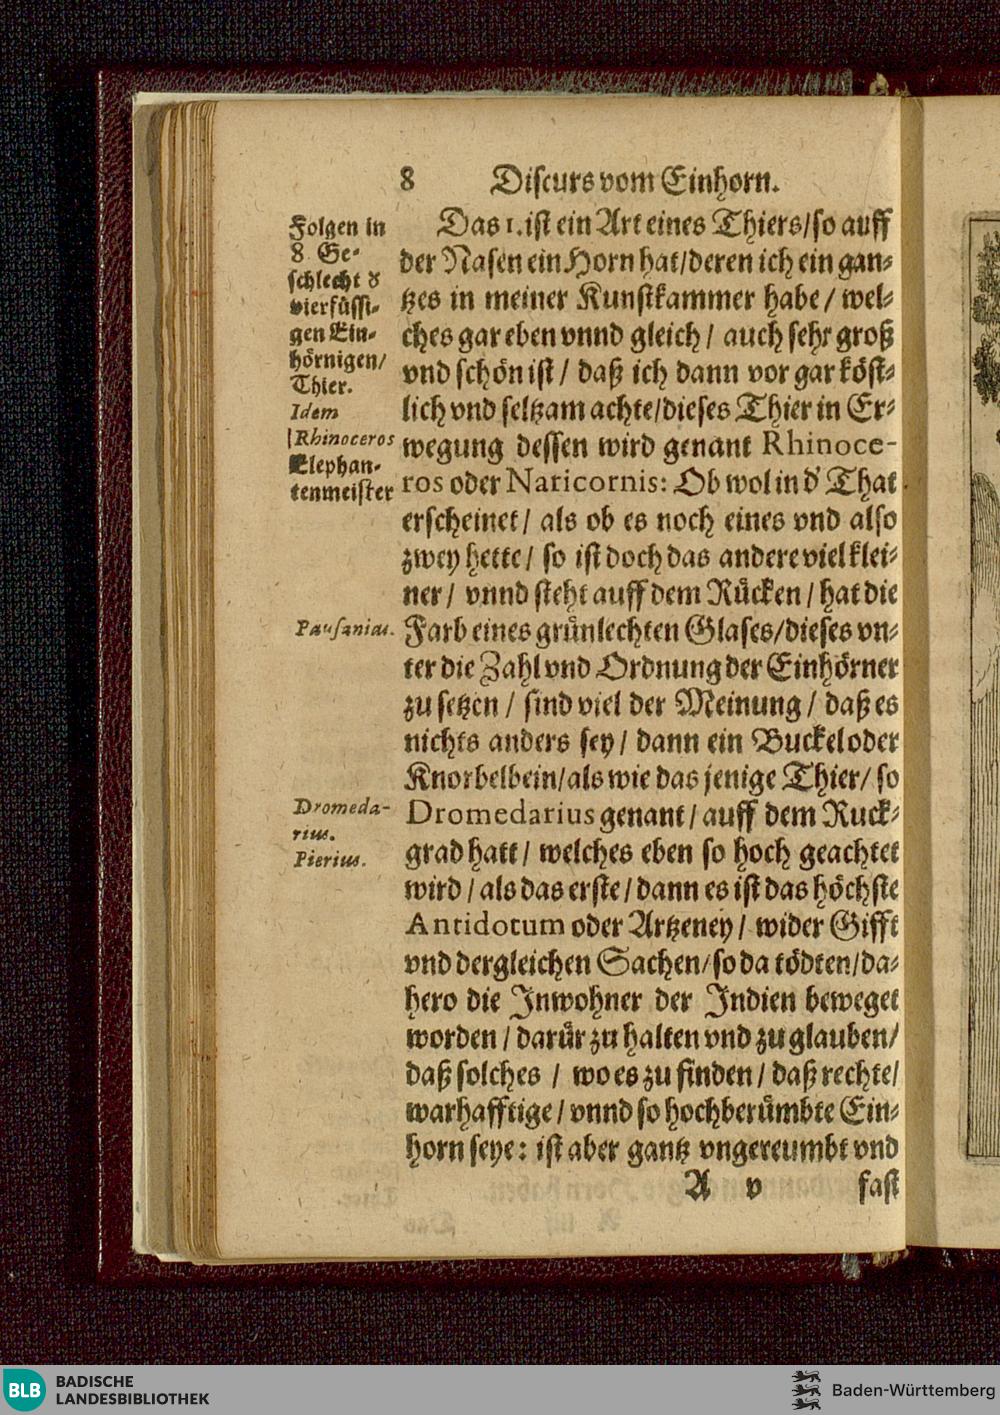 8 Discurs vom Einhorn.
Folgen in
8 Ge-
schlecht d
vierfüssi-
gen Ein-
hörnigen/
Thier.
Idem
Rhinoceros
Elephan-
tenmeister
Pausanias.
Dromeda-
rius.
Pierius.
Das 1. ist ein Art eines Thiers/so auff
der Nasen ein Horn hat/deren ich ein gan-
tzes in meiner Kunstkammer habe/ wel-
ches gar eben vnnd gleich/ auch sehr groß
vnd schön ist/ daß ich dann vor gar köst-
lich vnd seltzam achte/dieses Thier in Er-
wegung dessen wird genant Rhinoce-
ros oder Naricornis: Ob wol in d' That
erscheinet/ als ob es noch eines vnd also
zwey hette/ so ist doch das andere viel klei-
ner/ vnnd steht auff dem Rücken/ hat die
Farb eines grünlechten Glases/dieses vn-
ter die Zahl vnd Ordnung der Einhörner
zu setzen/ sind viel der Meinung/ daß es
nichts anders sey/ dann ein Buckel oder
Knorbelbein/als wie das jenige Thier/ so
Dromedarius genant/ auff dem Ruck-
grad hatt/ welches eben so hoch geachtet
wird/ als das erste/ dann es ist das höchste
Antidotum oder Artzeney/ wider Gifft
vnd dergleichen Sachen/so da tödten/da-
hero die Inwohner der Indien beweget
worden/ darür zu halten vnd zu glauben/
daß solches/ wo es zu finden/ daß rechte/
warhafftige/ vnnd so hochberümbte Ein-
horn seye: ist aber gantz vngereumbt vnd
A v fast
BLB BADISCHE
LANDESBIBLIOTHEK
Baden-Württemberg